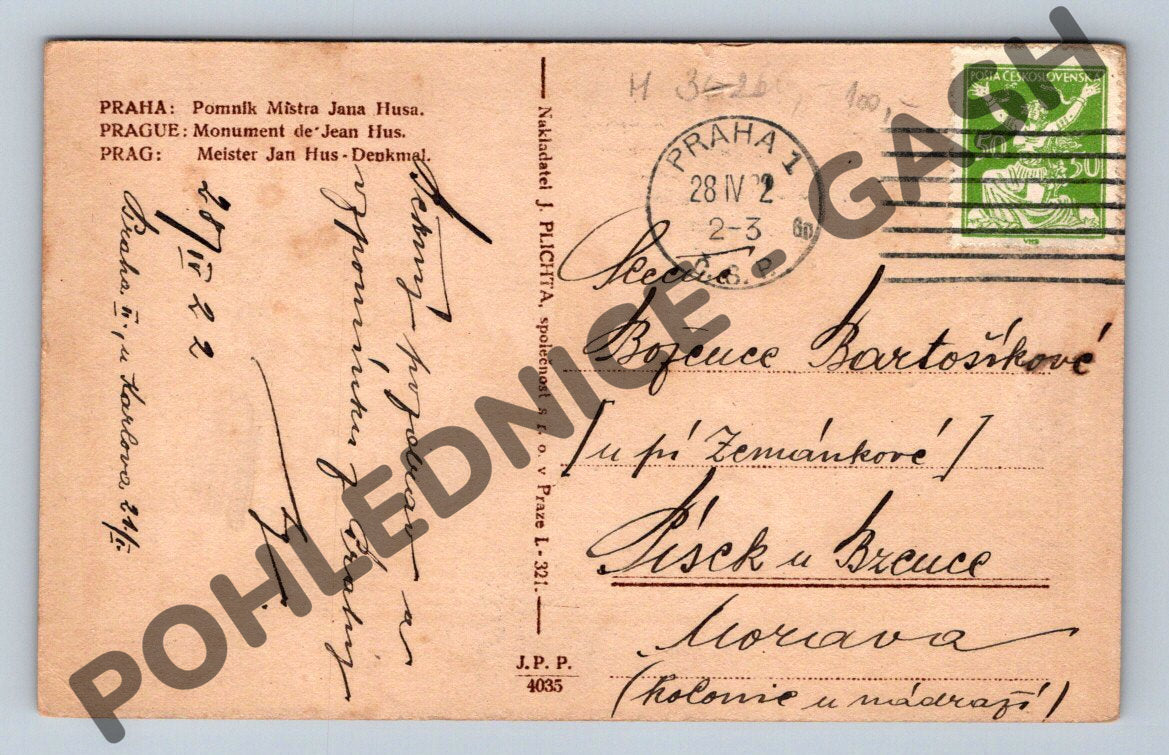 PRAHA: Pomník Mistra Jana Husa.
PRAGUE: Monument de Jean Hus.
PRAG: Meister Jan Hus-Denkmal.
28/IV 22
Praha II., u Karlova, 21/I.
Pěkný pozdrav a
vzpomínku z Prahy
Nakladatel J. PLICHTA, společnost s r. o. v Praze I.-321.
J. P. P.
4035
100,-
PRAHA 1
28 IV 22
2-3
Č.S.P.
POŠTA ČESKOSLOVENSKÁ
50 50
Slečna
Božence Bartošíkové
[u pí Zemánkové]
Písek u Bzence
Morava
(kolonie u nádraží)
POHLEDNICE - GASH